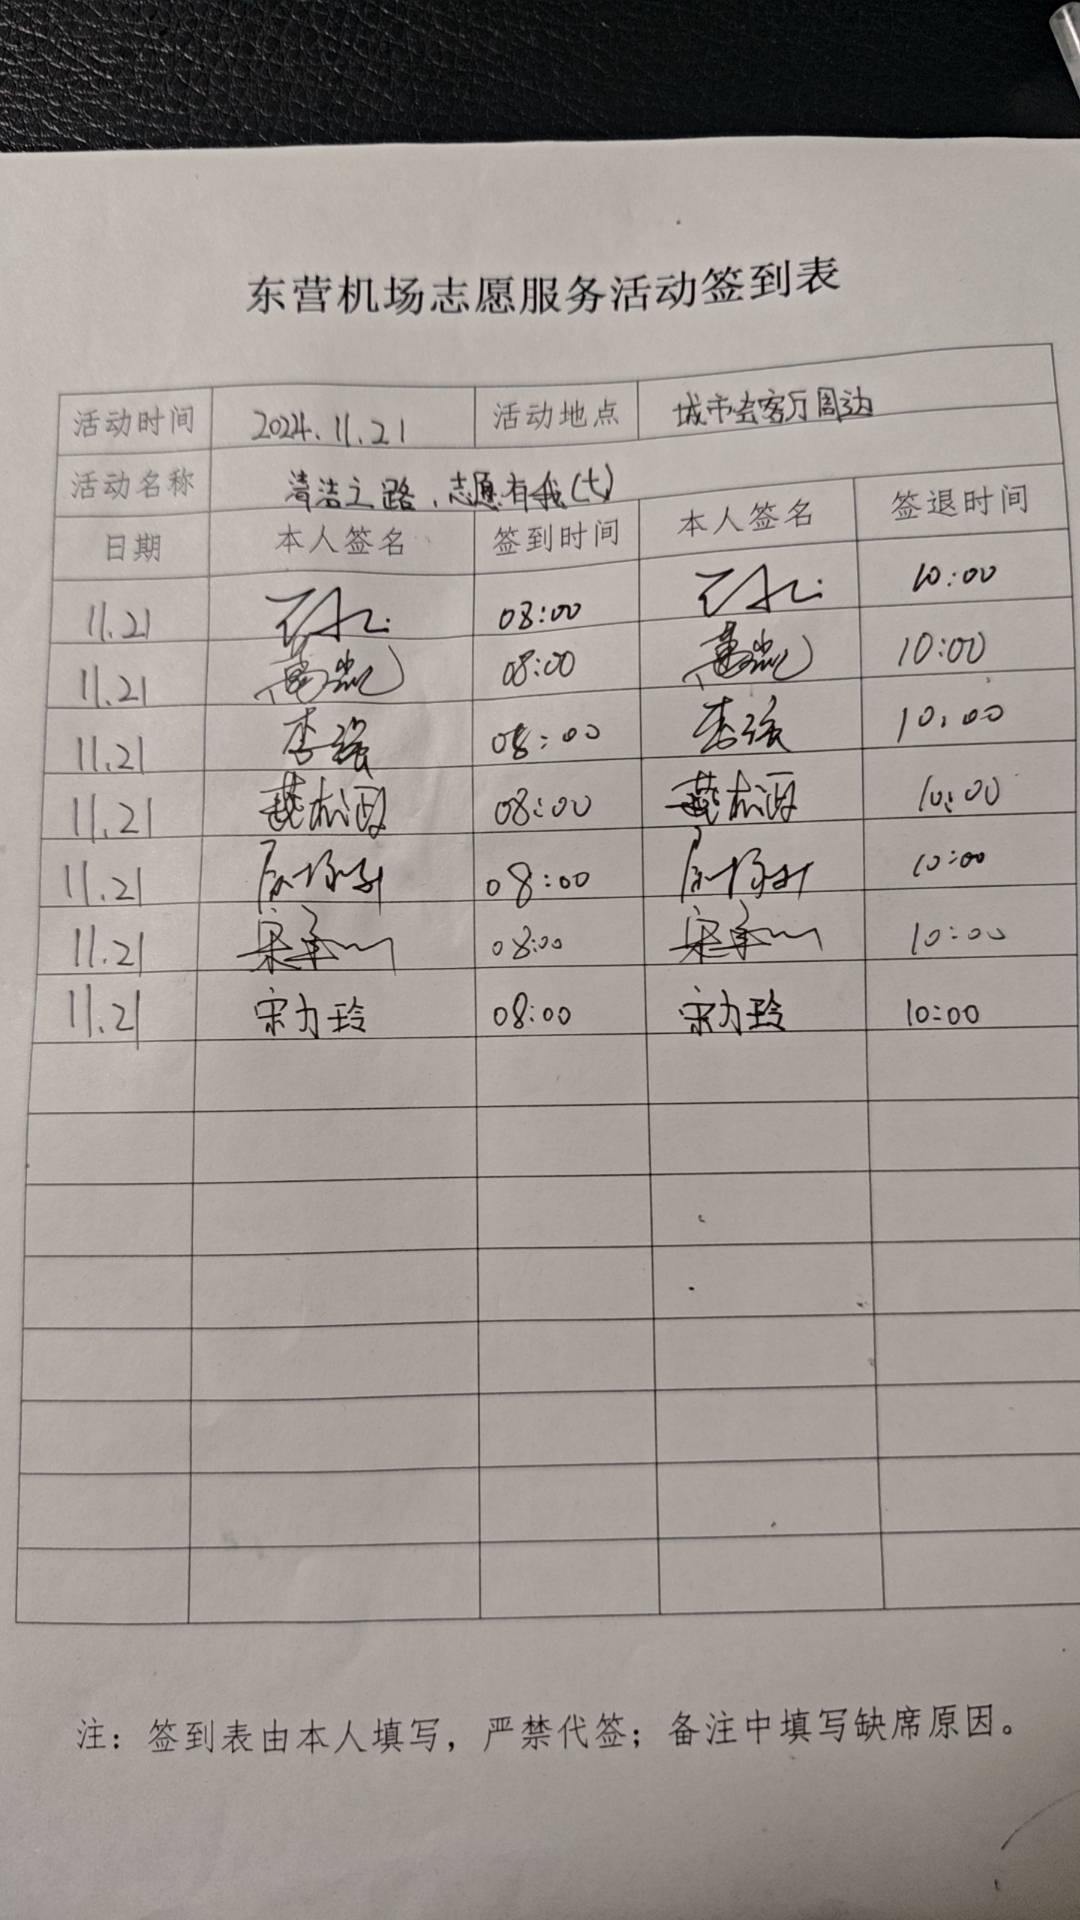 东营机场志愿服务活动签到表
活动时间 2024.11.21 活动地点 城市会客厅周边
活动名称 清洁之路,志愿有我(七)
日期 本人签名 签到时间 本人签名 签退时间
11.21 08:00 10:00
11.21 08:00 10:00
11.21 李强 08:00 李强 10:00
11.21 08:00 10:00
11.21 08:00 10:00
11.21 08:00 10:00
11.21 宋力玲 08:00 宋力玲 10:00
注：签到表由本人填写，严禁代签；备注中填写缺席原因。